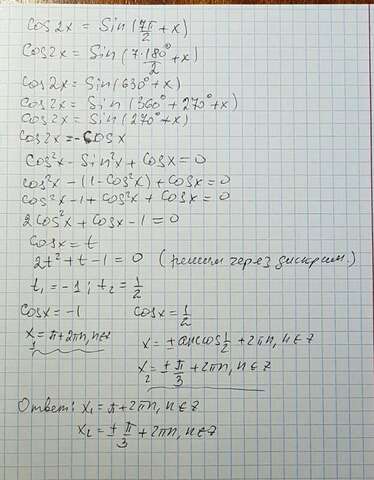 Cos2x = Sin(7π/2 + x)
Cos2x = Sin(7·180°/2 + x)
Cos2x = Sin(630° + x)
Cos2x = Sin(360° + 270° + x)
Cos2x = Sin(270° + x)
Cos2x = -Cosx
Cos²x - Sin²x + Cosx = 0
cos²x - (1 - Cos²x) + Cosx = 0
cos²x - 1 + cos²x + Cosx = 0
2cos²x + Cosx - 1 = 0
Cosx = t
2t² + t - 1 = 0 (решим через дискрим.)
t₁ = -1; t₂ = 1/2
Cosx = -1 Cosx = 1/2
x₁ = π + 2πn, n∈z x = ±arccos 1/2 + 2πn, n∈z
x₂ = ± π/3 + 2πn, n∈z
Ответ: x₁ = π + 2πn, n∈z
x₂ = ± π/3 + 2πn, n∈z